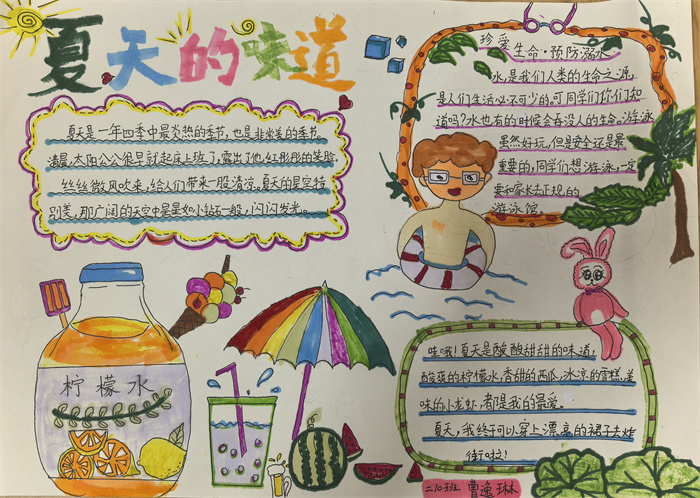 夏天的味道
夏天是一年四季中最炎热的季节,也是非常美的季节。
清晨,太阳公公很早就起床上班了,露出了他红彤彤的笑脸。
丝丝微风吹来,给人们带来一股清凉。夏天的星空特
别美,那广阔的天空中星星如小钻石一般,闪闪发光。
珍爱生命·预防溺水
水,是我们人类的生命之源,
是人们生活必不可少的。可同学们你们知
道吗?水也有的时候会吞没人的生命。游泳
虽然好玩,但是安全还是最
重要的,同学们想游泳,一定
要和家长去正规的
游泳馆。
柠檬水
哇哦!夏天是酸酸甜甜的味道,
酸爽的柠檬水,香甜的西瓜,冰凉的雪糕,美
味的小龙虾,都是我的最爱。
夏天,我终于可以穿上漂亮的裙子去炸
街啦!
二10班 曹逸琳